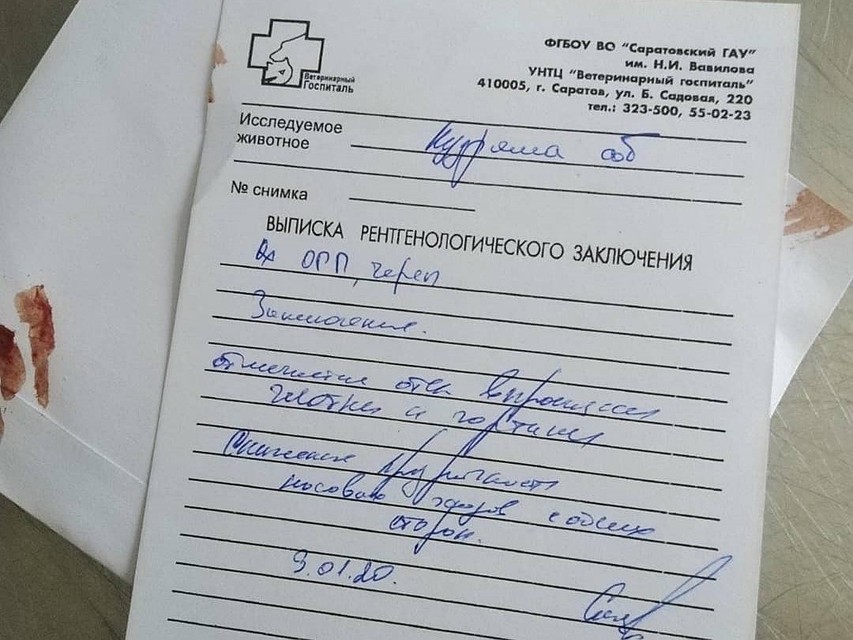 Ветеринарный
Госпиталь
ФГБОУ ВО "Саратовский ГАУ"
им. Н.И. Вавилова
УНТЦ "Ветеринарный госпиталь"
410005, г. Саратов, ул. Б. Садовая, 220
тел.: 323-500, 55-02-23
Исследуемое
животное
Кудряма соб
№ снимка
ВЫПИСКА РЕНТГЕНОЛОГИЧЕСКОГО ЗАКЛЮЧЕНИЯ
ОГП, череп
Заключение.
отмечается отек в проекции
глотки и гортани
Снижение
носовых ходов с обеих
сторон.
9.01.20.